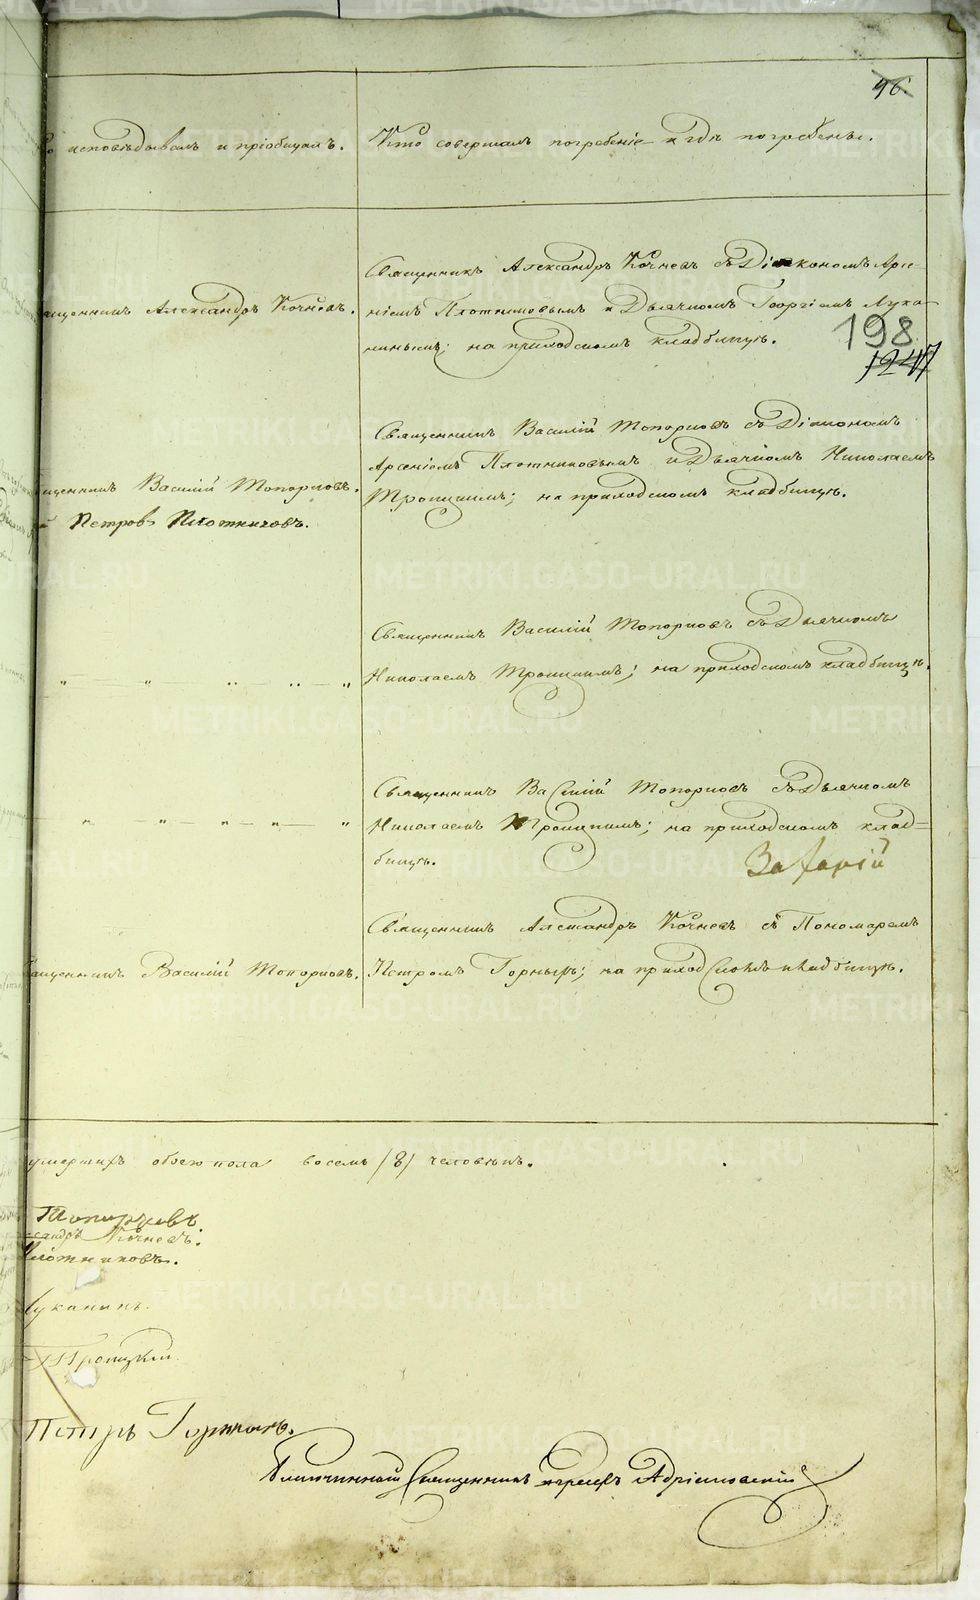 96.
исповѣдывалъ и пріобщалъ.
Кто совершалъ погребеніе и гдѣ погребены.
Священникъ Александръ Кочневъ съ Діякономъ Арсе-
ніемъ Плотниковымъ и Дьячкомъ Георгіемъ Лука-
нинымъ; на приходскомъ кладбищѣ.
ященникъ Александръ Кочневъ.
198
1247
Священникъ Василій Топорковъ съ Діакономъ
Арсеніемъ Плотниковымъ и Дьячкомъ Николаемъ
Троицкимъ; на приходскомъ кладбищѣ.
щенникъ Василій Топорковъ.
й Петровъ Плотниковъ.
Священникъ Василій Топорковъ съ Дьячкомъ
Николаемъ Троицкимъ; на приходскомъ кладбищѣ.
„ „ „ „ „
Священникъ Василій Топорковъ съ Дьячкомъ
Николаемъ Троицкимъ; на приходскомъ клад-
бищѣ.
„ „ „ „ „
Захарій
Священникъ Александръ Кочневъ съ Пономаремъ
Петромъ Горныхъ; на приходскомъ кладбищѣ.
ященникъ Василій Топорковъ.
умершихъ обоего пола восемь /8/ человѣкъ.
Топорковъ.
ксандръ Кочневъ.
Плотниковъ.
Луканинъ.
Троицкій.
Петръ Горныхъ.
Благочинный Священникъ Адріановскій
METRIKI.GASO-URAL.RU